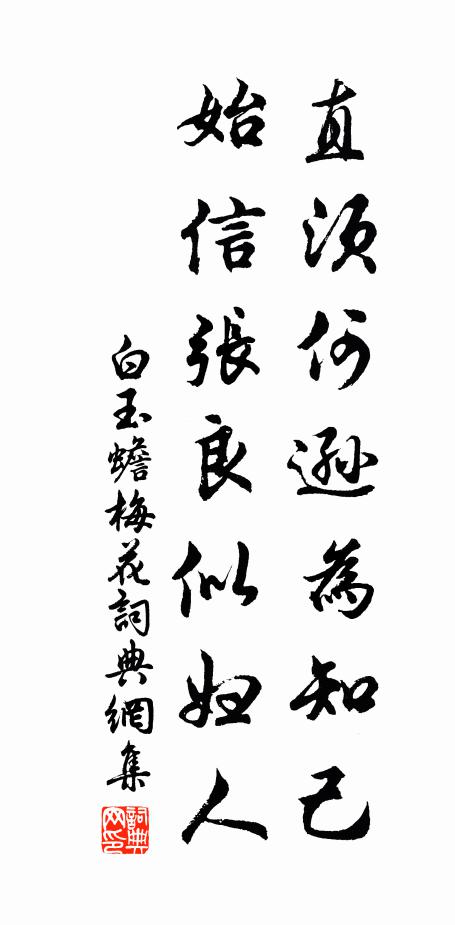 直須何遜為知己
始信張良似婦人
白玉蟾梅花詞典網集
詞典网印